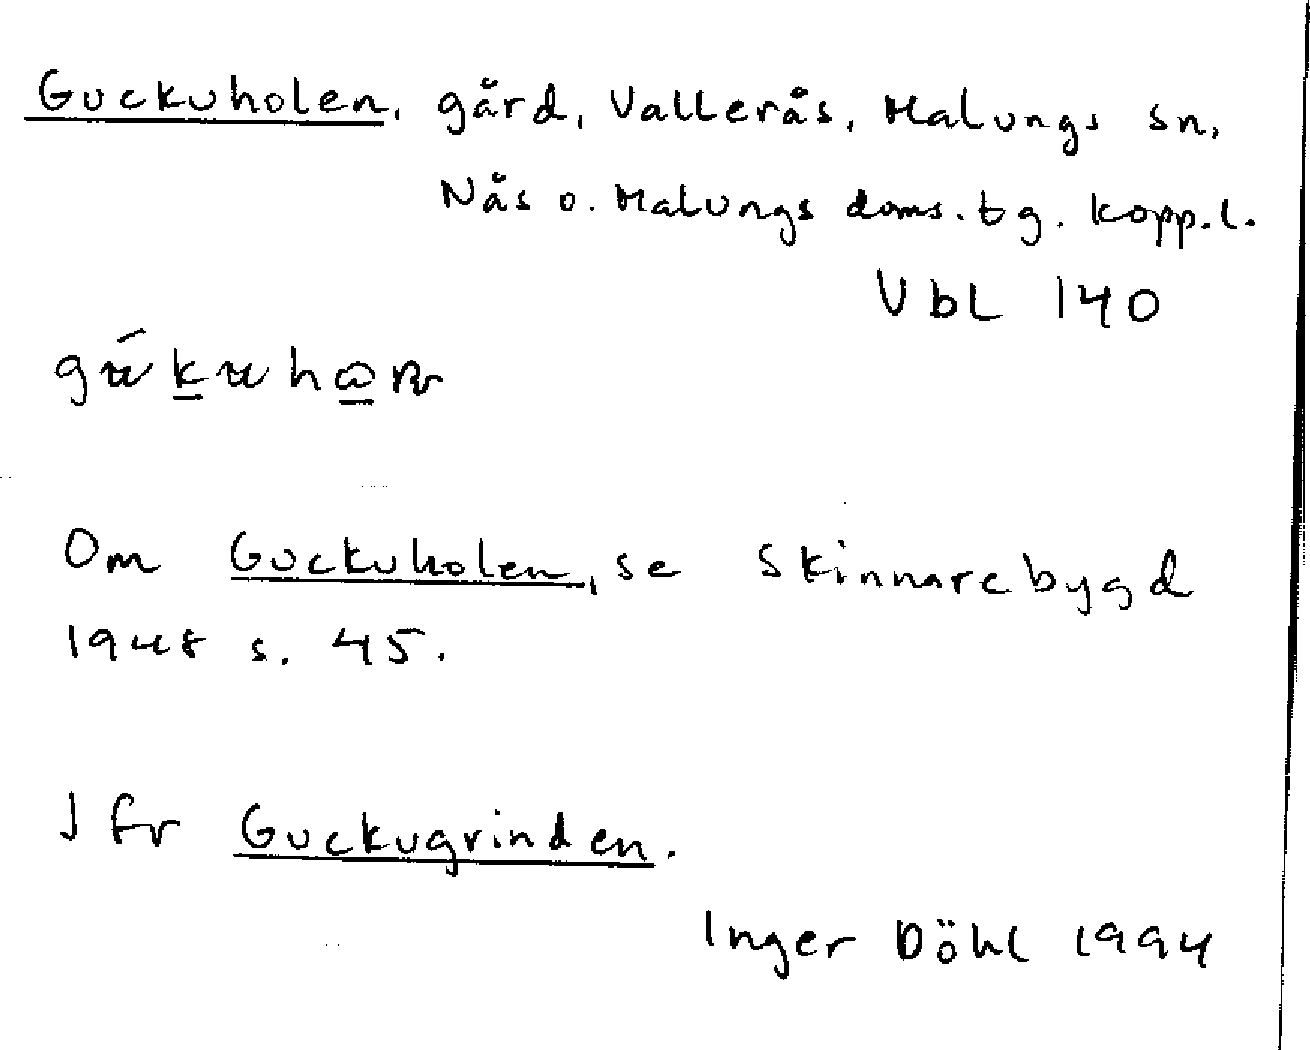 Guckuholen, gård, Vallerås, Malungs sn,
Nås o. Malungs doms. tg. Kopp.l.
Vbl 140
Om Guckuholen, se Skinnarebygd
1948 s. 45.
Jfr Guckugrinden.
Inger Döhl 1994